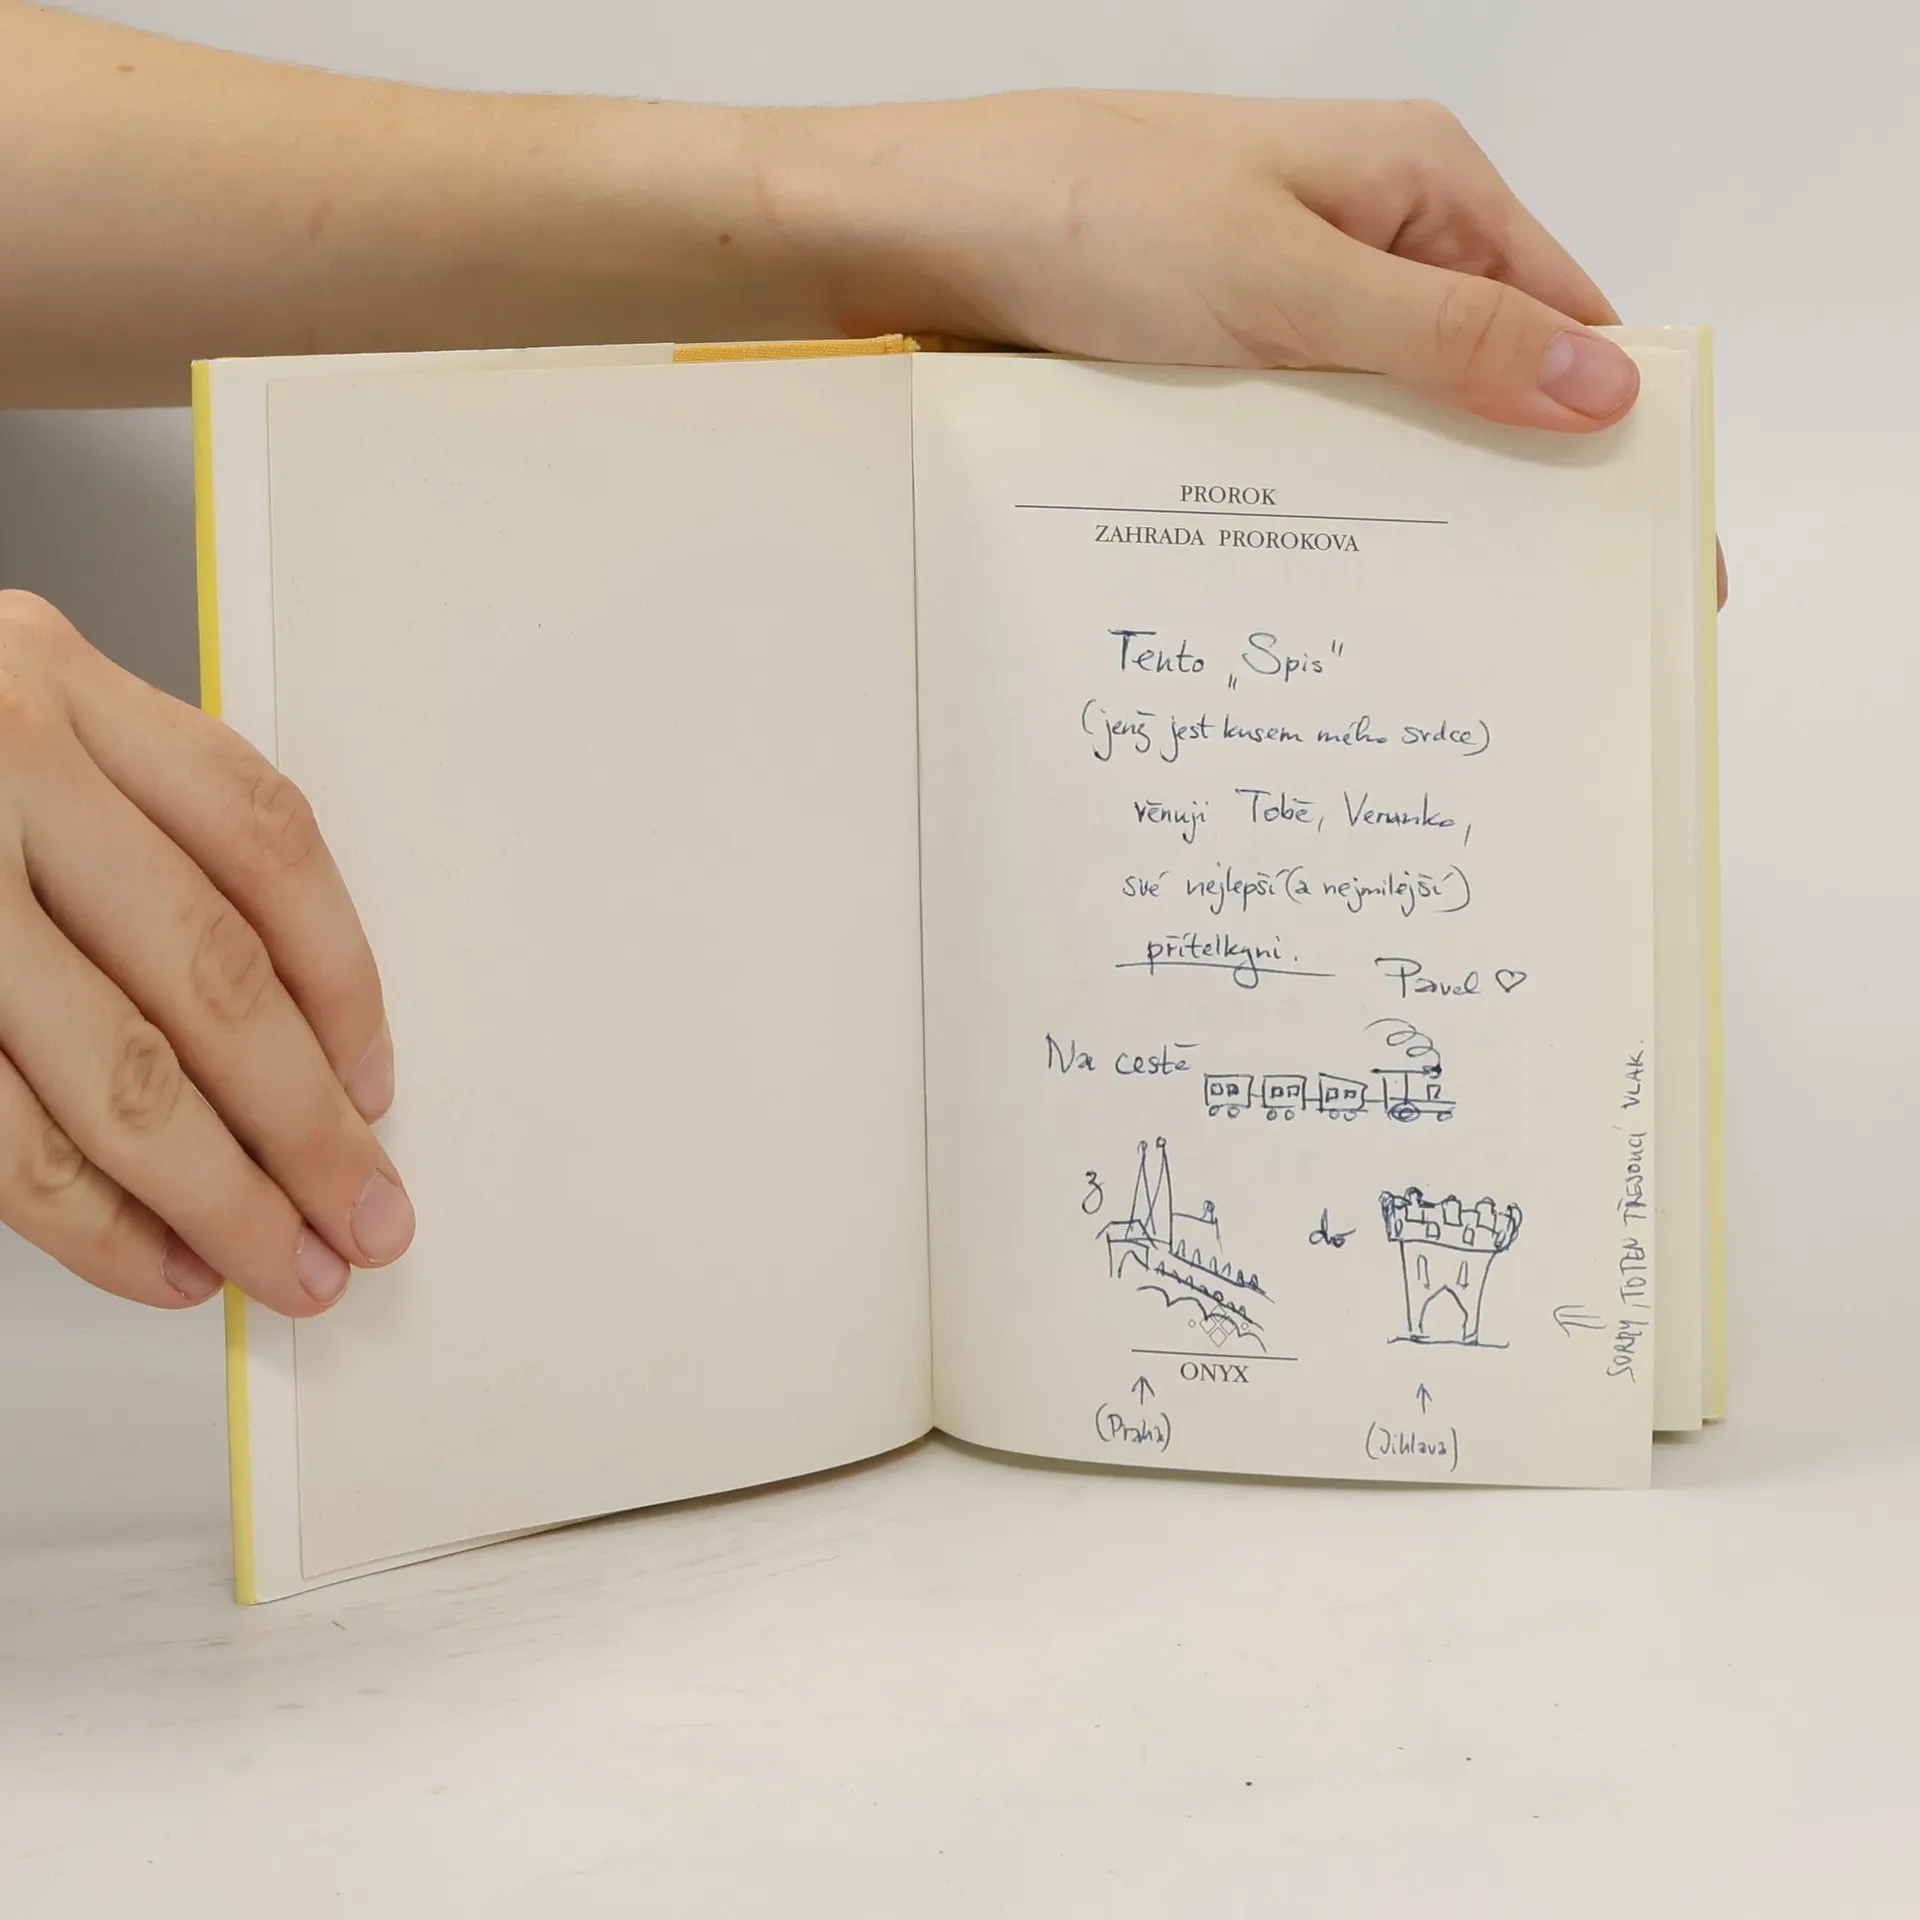 PROROK
ZAHRADA PROROKOVA
Tento „Spis"
(jenž jest kusem mého srdce)
věnuji Tobě, Verunko,
své nejlepší (a nejmilejší)
přítelkyni.
Pavel ♡
Na cestě
z
do
ONYX
↑ ↑
(Praha) (Jihlava)
⇑ SORRY, TO TEN TŘESOUCÍ VLAK.